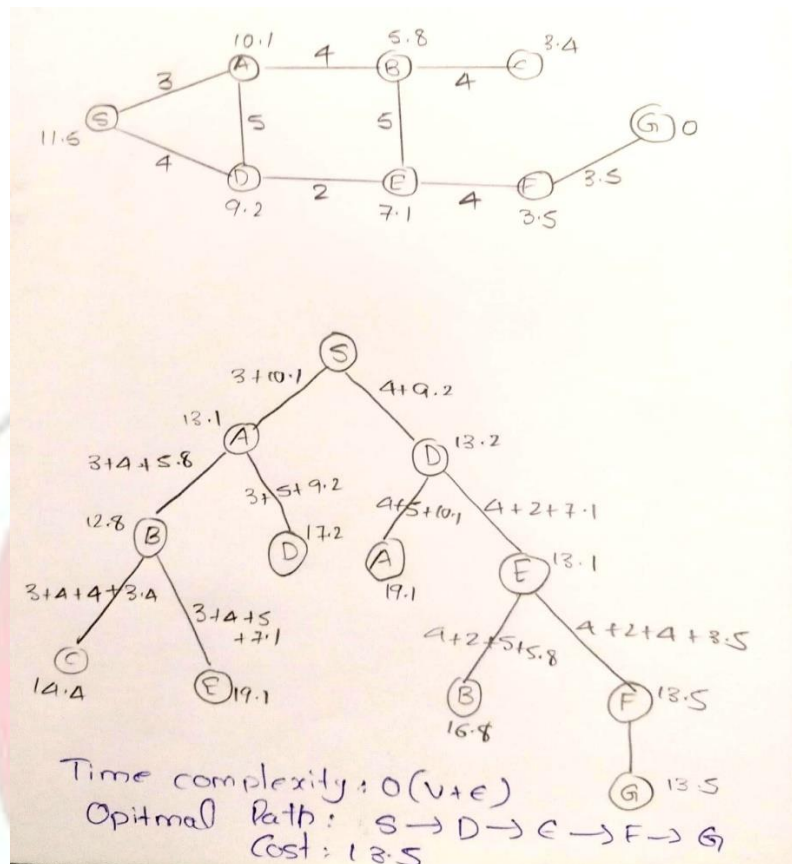 10.1 5.8 3.4
A 4 B 4 C
3
S 5 5 G 0
11.5
4 3.5
D 2 E 4 F
9.2 7.1 3.5
S
3+10.1 4+9.2
13.1 A D 13.2
3+4+5.8 3+5+9.2 4+5+10.1 4+2+7.1
12.8 B D 17.2 A E 13.1
19.1
3+4+4+3.4 3+4+5
+7.1 4+2+5+5.8 4+2+4+3.5
C E 19.1 B F 13.5
14.4 16.8
G 13.5
Time complexity: O(V+E)
Opitmal Path: S → D → E → F → G
Cost: 13.5